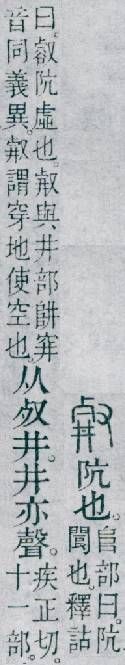 𠭊阬也。𨸏部曰。阬
閬也。釋詁
曰。㕡阬虛也。𠭊與井部阱穽
音同義異。𠭊謂穿地使空也。
从𣦻井。井亦聲。疾正切。
十一部。